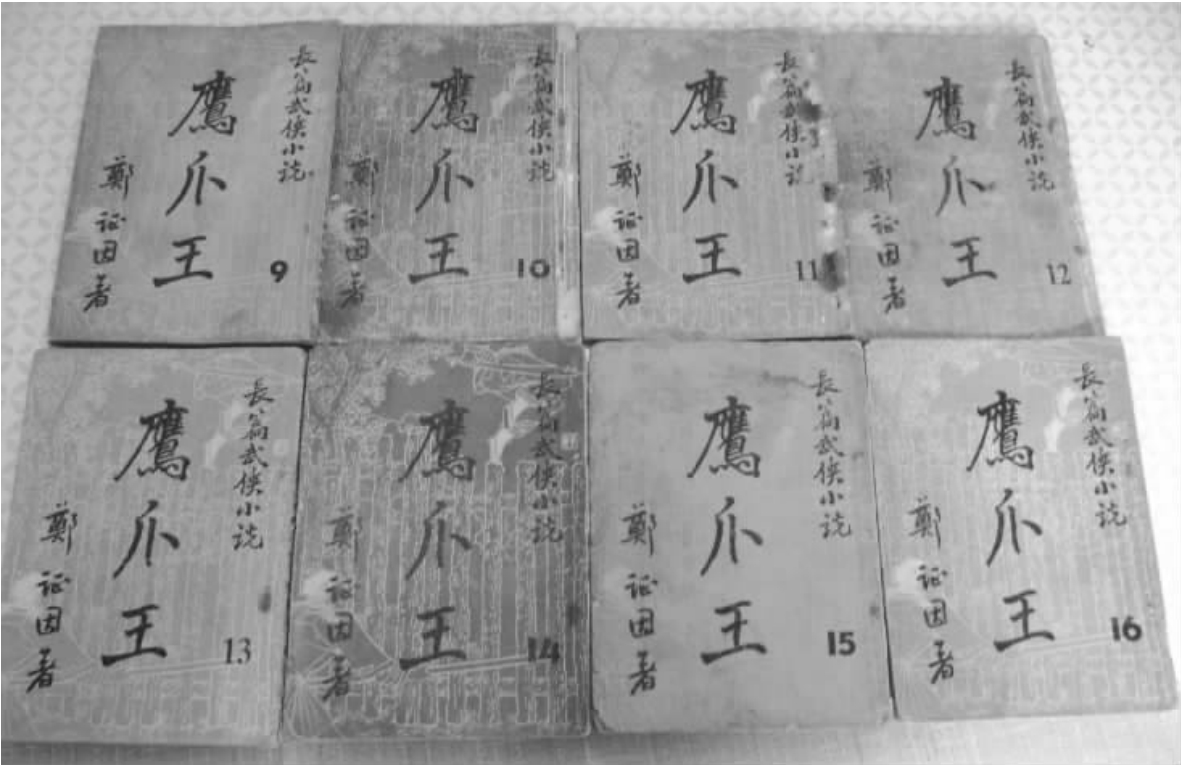 長篇武俠小说
鷹爪王
鄭证因著
9
長篇武俠小说
鷹爪王
鄭证因著
10
長篇武俠小说
鷹爪王
鄭证因著
11
長篇武俠小说
鷹爪王
鄭证因著
12
長篇武俠小说
鷹爪王
鄭证因著
13
長篇武俠小说
鷹爪王
鄭证因著
14
長篇武俠小说
鷹爪王
鄭证因著
15
長篇武俠小说
鷹爪王
鄭证因著
16